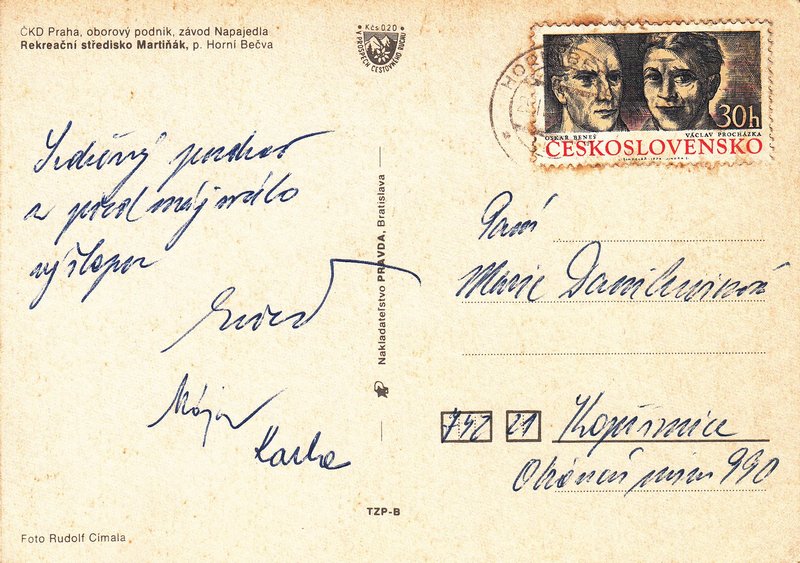 ČKD Praha, oborový podnik, závod Napajedla
Rekreační středisko Martiňák, p. Horní Bečva
Kčs 0,20
V PROSPĚCH CESTOVNÉHO RUCHU
HOR BE
30h
OSKAR BENEŠ
VÁCLAV PROCHÁZKA
ČESKOSLOVENSKO
Srdečný pozdrav
z prvomájového
výšlapu
Mája
Karla
Nakladateľstvo PRAVDA, Bratislava
Paní
Marie
742 21 Kopřivnice
Obránců míru 990
TZP-B
Foto Rudolf Cimala